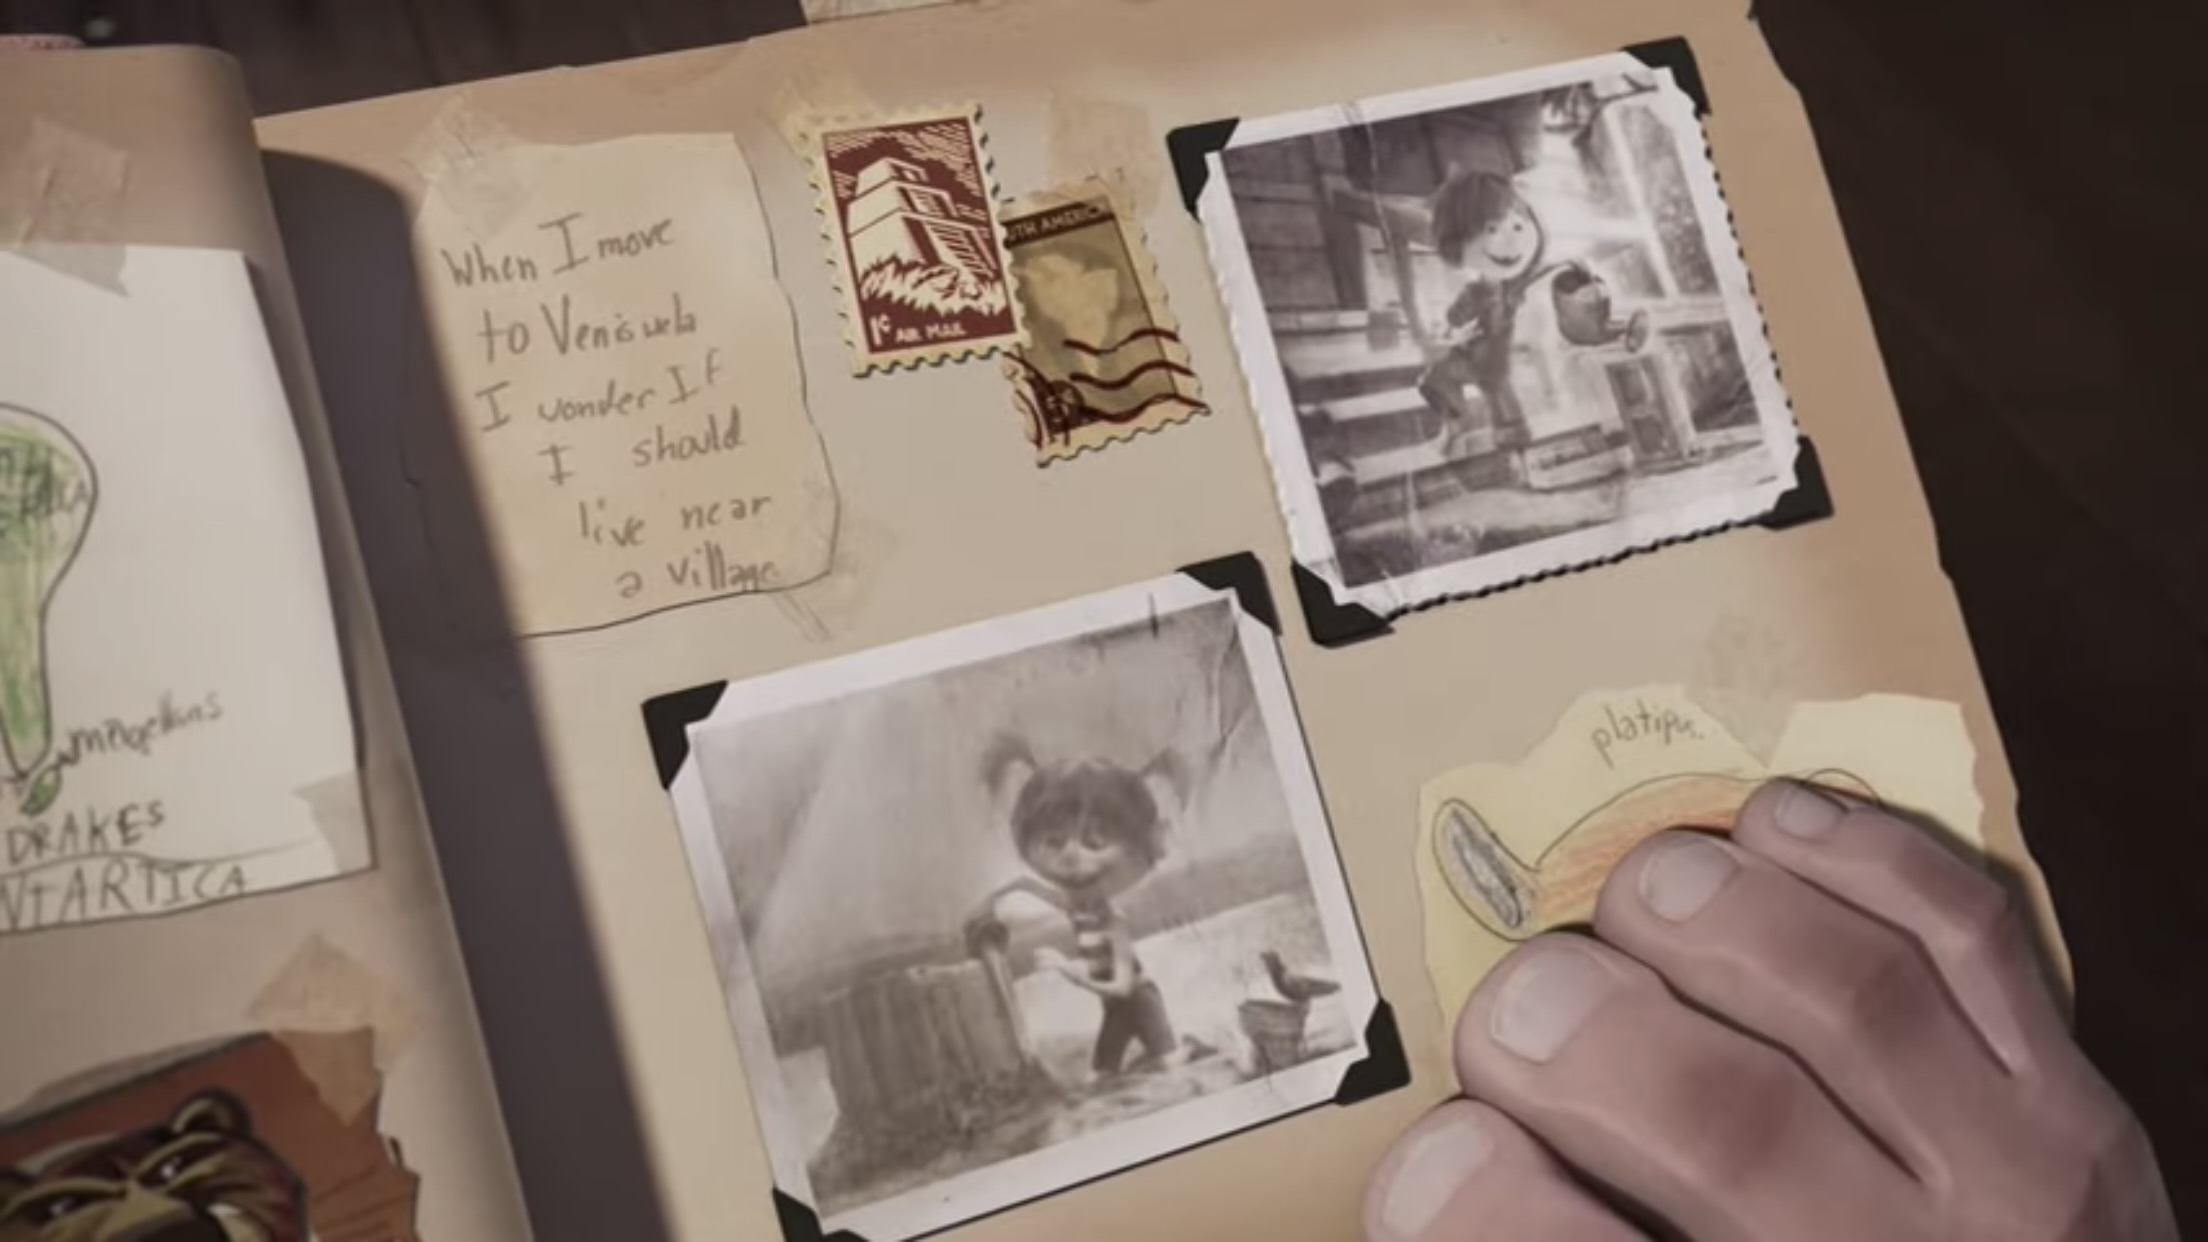 magellans
DRAKES
NTARTICA
When I move
to Veniswela
I wonder If
I should
live near
a village
1¢ AIR MAIL
UTH AMERIC
platipu